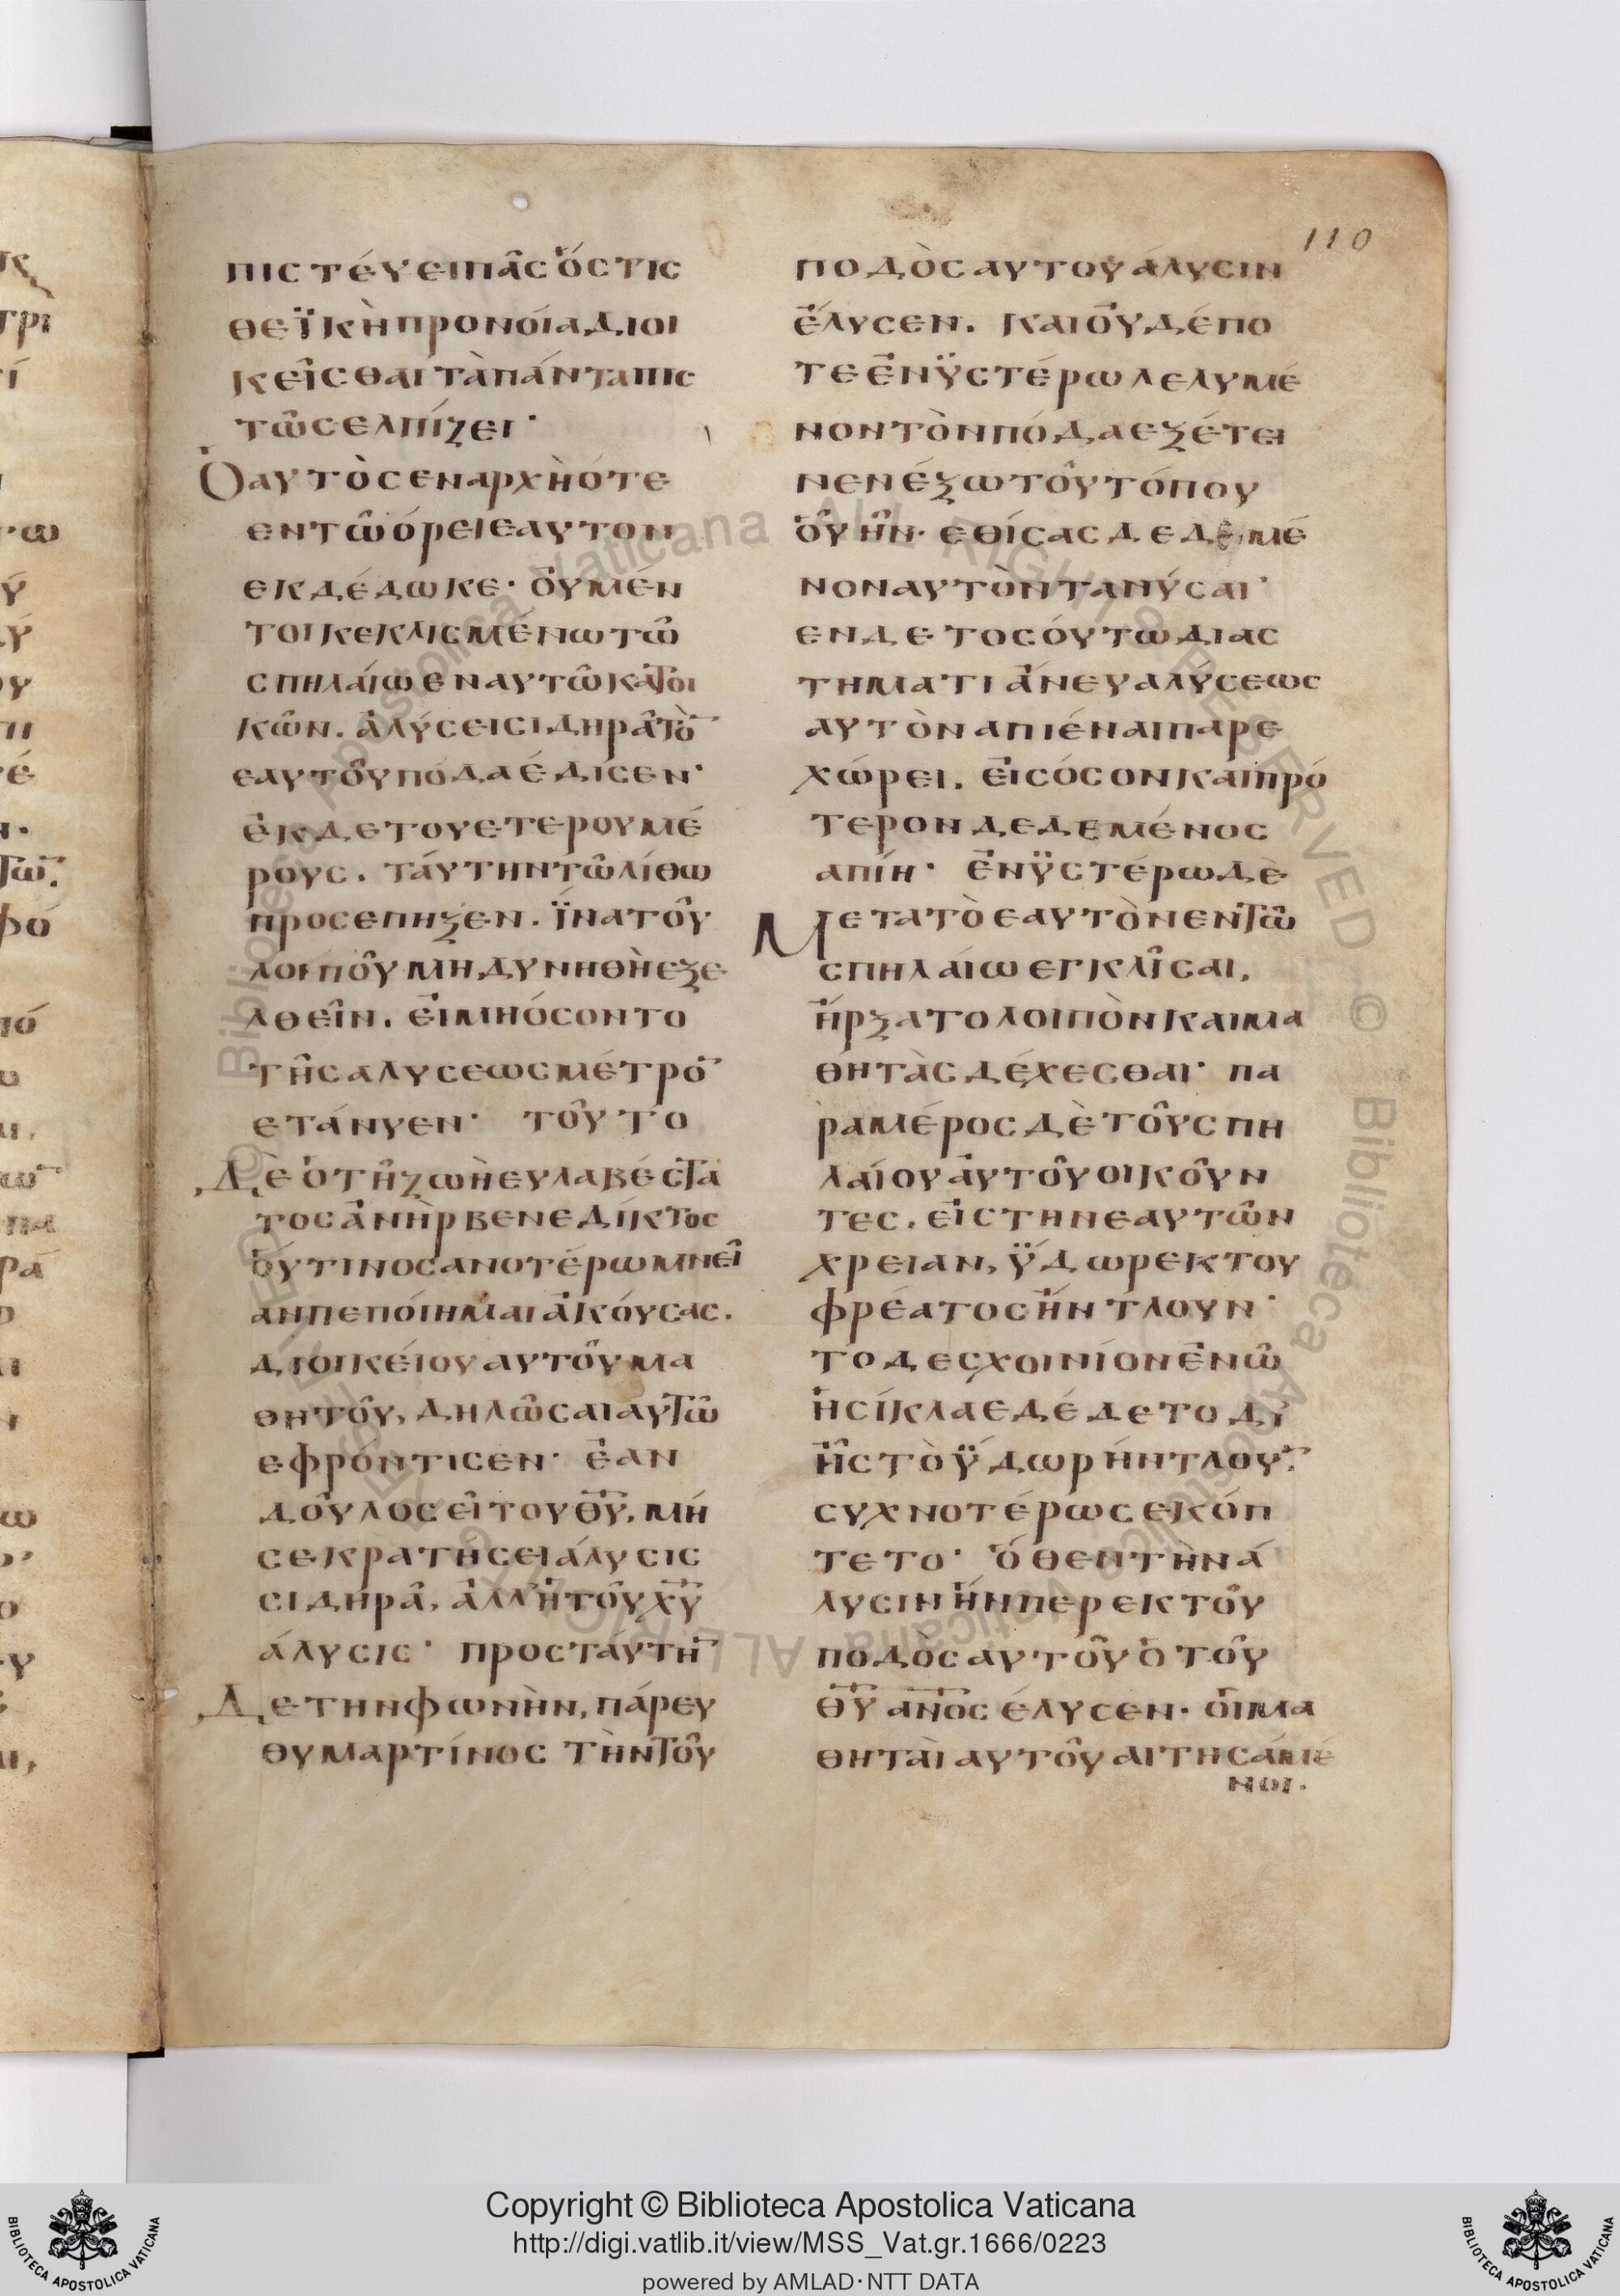 110
πιστέυειπᾶσὅστις
θεϊκὴπρονοίαδιοι
κεῖσθαιτὰπάνταπισ
τῶσελπίζει·
Ὁαυτὸσεναρχὴότε
εντῶόρειεαυτον
εκδέδωκε· ὀυμέν
τοικεκλισμένωτῶ
σπηλάιωεναυτῶκατοι
κῶν. ἁλύσεισιδηρᾶτὸ̄
εαυτοῦπόδαέδισεν·
ἐκδετουετερουμέ
ρους. τάυτηντῶλίθω
προσεπηξεν. ϊνατοῦ
λοιποῦμηδυνηθὴεξε
λθεῖν. ἐιμηόσοντο
τῆσαλυσεωσμέτρο̄
ετάνυεν· τοῦτο
Δὲὁτῆζωὴευλαβέστα
τοσἀνὴρβενεδίκτος
ὅυτινοσανοτέρωμνεί
ανπεπόιημαιἀκόυσας.
διοικέιουαυτοῦμα
θητοῦ, δηλῶσαιαυτῶ
εφρόντισεν· ἐὰν
δοῦλοσεῖτουθ̅υ̅, μή
σεκρατήσειάλυσις
σιδηρᾶ, ἀλλ'ἡτοῦχ̅υ̅
άλυσις· προστάυτη̄
Δετηνφωνὴν, πάρευ
θυμαρτίνοσ τὴντοῦ
ποδὸσαυτουάλυσιν
έλυσεν. καιοὐδέπο
τεἐνϋστέρωλελυμέ
νοντὸνπόδαεξέτει
νενέξωτοῦτόπου
ὅυἦν· εθίσασδεδεμέ
νοναυτὸντανύσαι·
ενδετοσόυτωδιασ
τηματιἄνευαλύσεως
αυτὸναπιέναιπαρε
χώρει. ἐισόσονκαιπρό
τερονδεδεμένος
απίη· ἐνϋστέρωδὲ
Μετατὸεαυτὸνεντῶ
σπηλάιωεγκλῖσαι,
ἤρξατολοιπὸνκαιμα
θητὰσδέχεσθαι· πα
ραμέροσδὲτοῦσπη
λάιουἀυτοῦοικοῦν
τες. ἐιστηνεαυτῶν
χρειαν, ϋδωρεκτου
φρέατοσἤντλουν·
τοδεσχοινίονἐνῶ
ἡσίκλαεδέδετοδι'
ἧστὸϋδωρήντλου̅·
συχνοτέρωσεκόπ
τετο· ὅθεντὴνά
λυσινἥνπερεκτοῦ
ποδὸσαυτοῦὁτοῦ
θ̅υ̅ α̅ν̅ο̅σ̅ έλυσεν· ὁιμα
θηταὶαυτοῦαιτησάμε
νοι.
Copyright © Biblioteca Apostolica Vaticana
http://digi.vatlib.it/view/MSS_Vat.gr.1666/0223
powered by AMLAD·NTT DATA
BIBLIOTECA APOSTOLICA VATICANA
BIBLIOTECA APOSTOLICA VATICANA